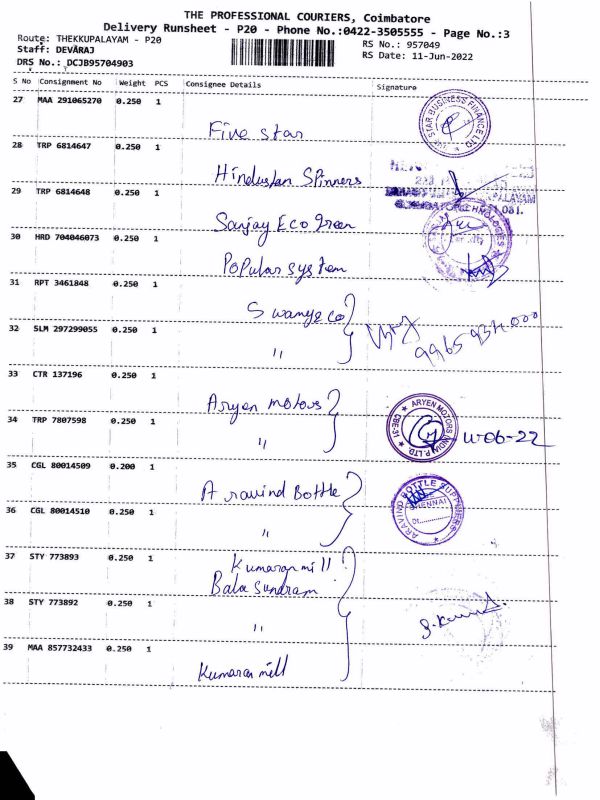 THE PROFESSIONAL COURIERS, Coimbatore
Delivery Runsheet - P20 - Phone No.:0422-3505555 - Page No.:3
Route: THEKKUPALAYAM - P20
RS No.: 957049
Staff: DEVARAJ
RS Date: 11-Jun-2022
DRS No.: DCJB95704903
S No Consignment No Weight PCS Consignee Details Signature
27 MAA 291065270 0.250 1
Five Star
STAR BUSINESS FINANCE LTD
28 TRP 6814647 0.250 1
Hindustan Spinners
29 TRP 6814648 0.250 1
Sanjay Eco green
30 HRD 704046073 0.250 1
Popular system
31 RPT 3461848 0.250 1
Swamy & co
32 SLM 297299055 0.250 1
"
33 CTR 137196 0.250 1
Aryen motors
ARYEN MOTORS INDIA P.LTD. CBE-31
34 TRP 7807598 0.250 1
"
11-06-22
35 CGL 80014509 0.200 1
Aravind Bottle
ARAVIND BOTTLE SUPPLIERS
CHENNAI
Dt
36 CGL 80014510 0.250 1
"
37 STY 773893 0.250 1
Kumaran mill
Bala Sundram
38 STY 773892 0.250 1
"
39 MAA 857732433 0.250 1
Kumaran mill